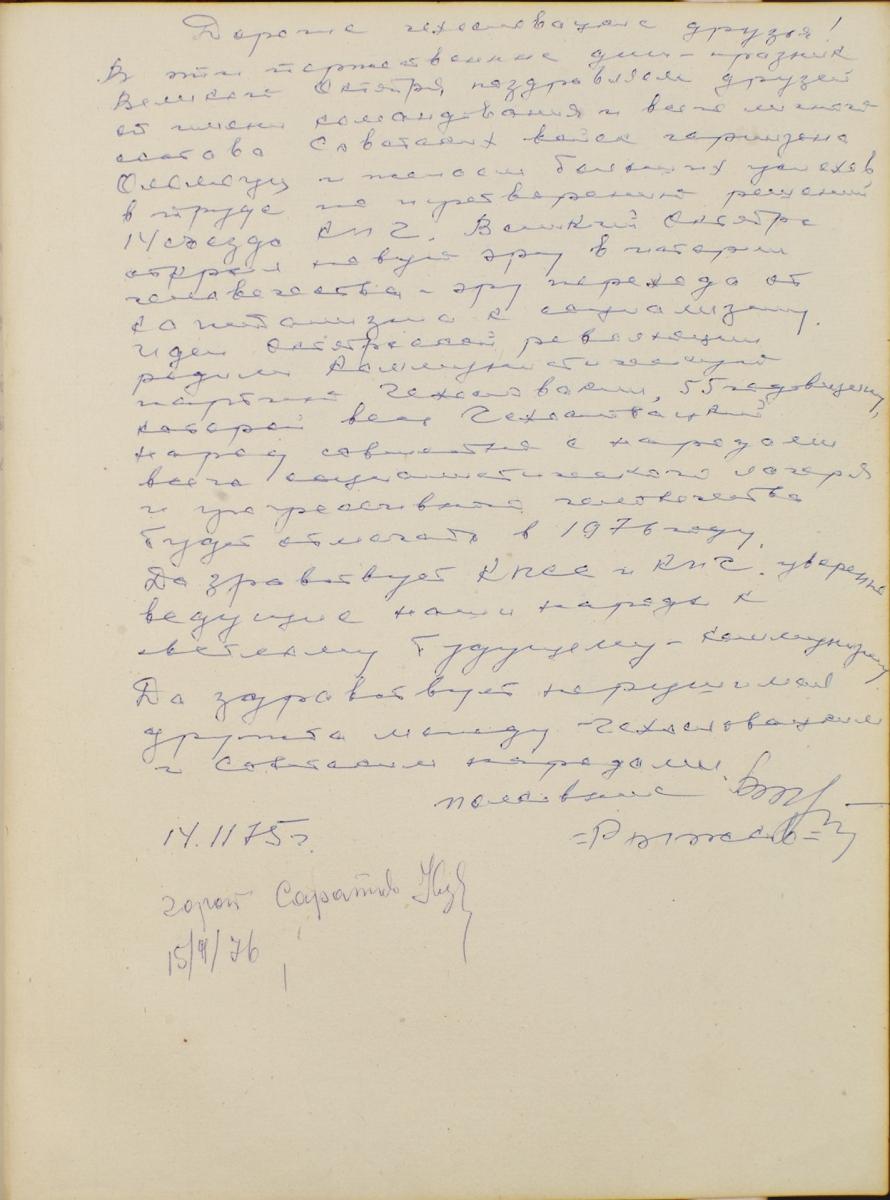 Дорогие чехословацкие друзья!
В эти торжественные дни - праздник
Великого Октября, поздравляем друзей
от имени командования и всего личного
состава Советских войск гарнизона
Оломоуц и желаем больших успехов
в труде по претворению решений
14 съезда КПЧ. Великий Октябрь
открыл новую эру в истории
человечества - эру перехода от
капитализма к социализму.
Идеи Октябрьской революции
родили Коммунистическую
партию Чехословакии, 55 годовщину,
которой весь Чехословацкий
народ совместно с народами
всего социалистического лагеря
и прогрессивного человечества
будет отмечать в 1976 году.
Да здравствует КПСС и КПЧ. уверенно
ведущие наши народы к
светлому будущему - коммунизму
Да здравствует нерушимая
дружба между Чехословацким
и Советским народами.
полковник
=Рыжков=
14.11 75 г.
город Саратов
76